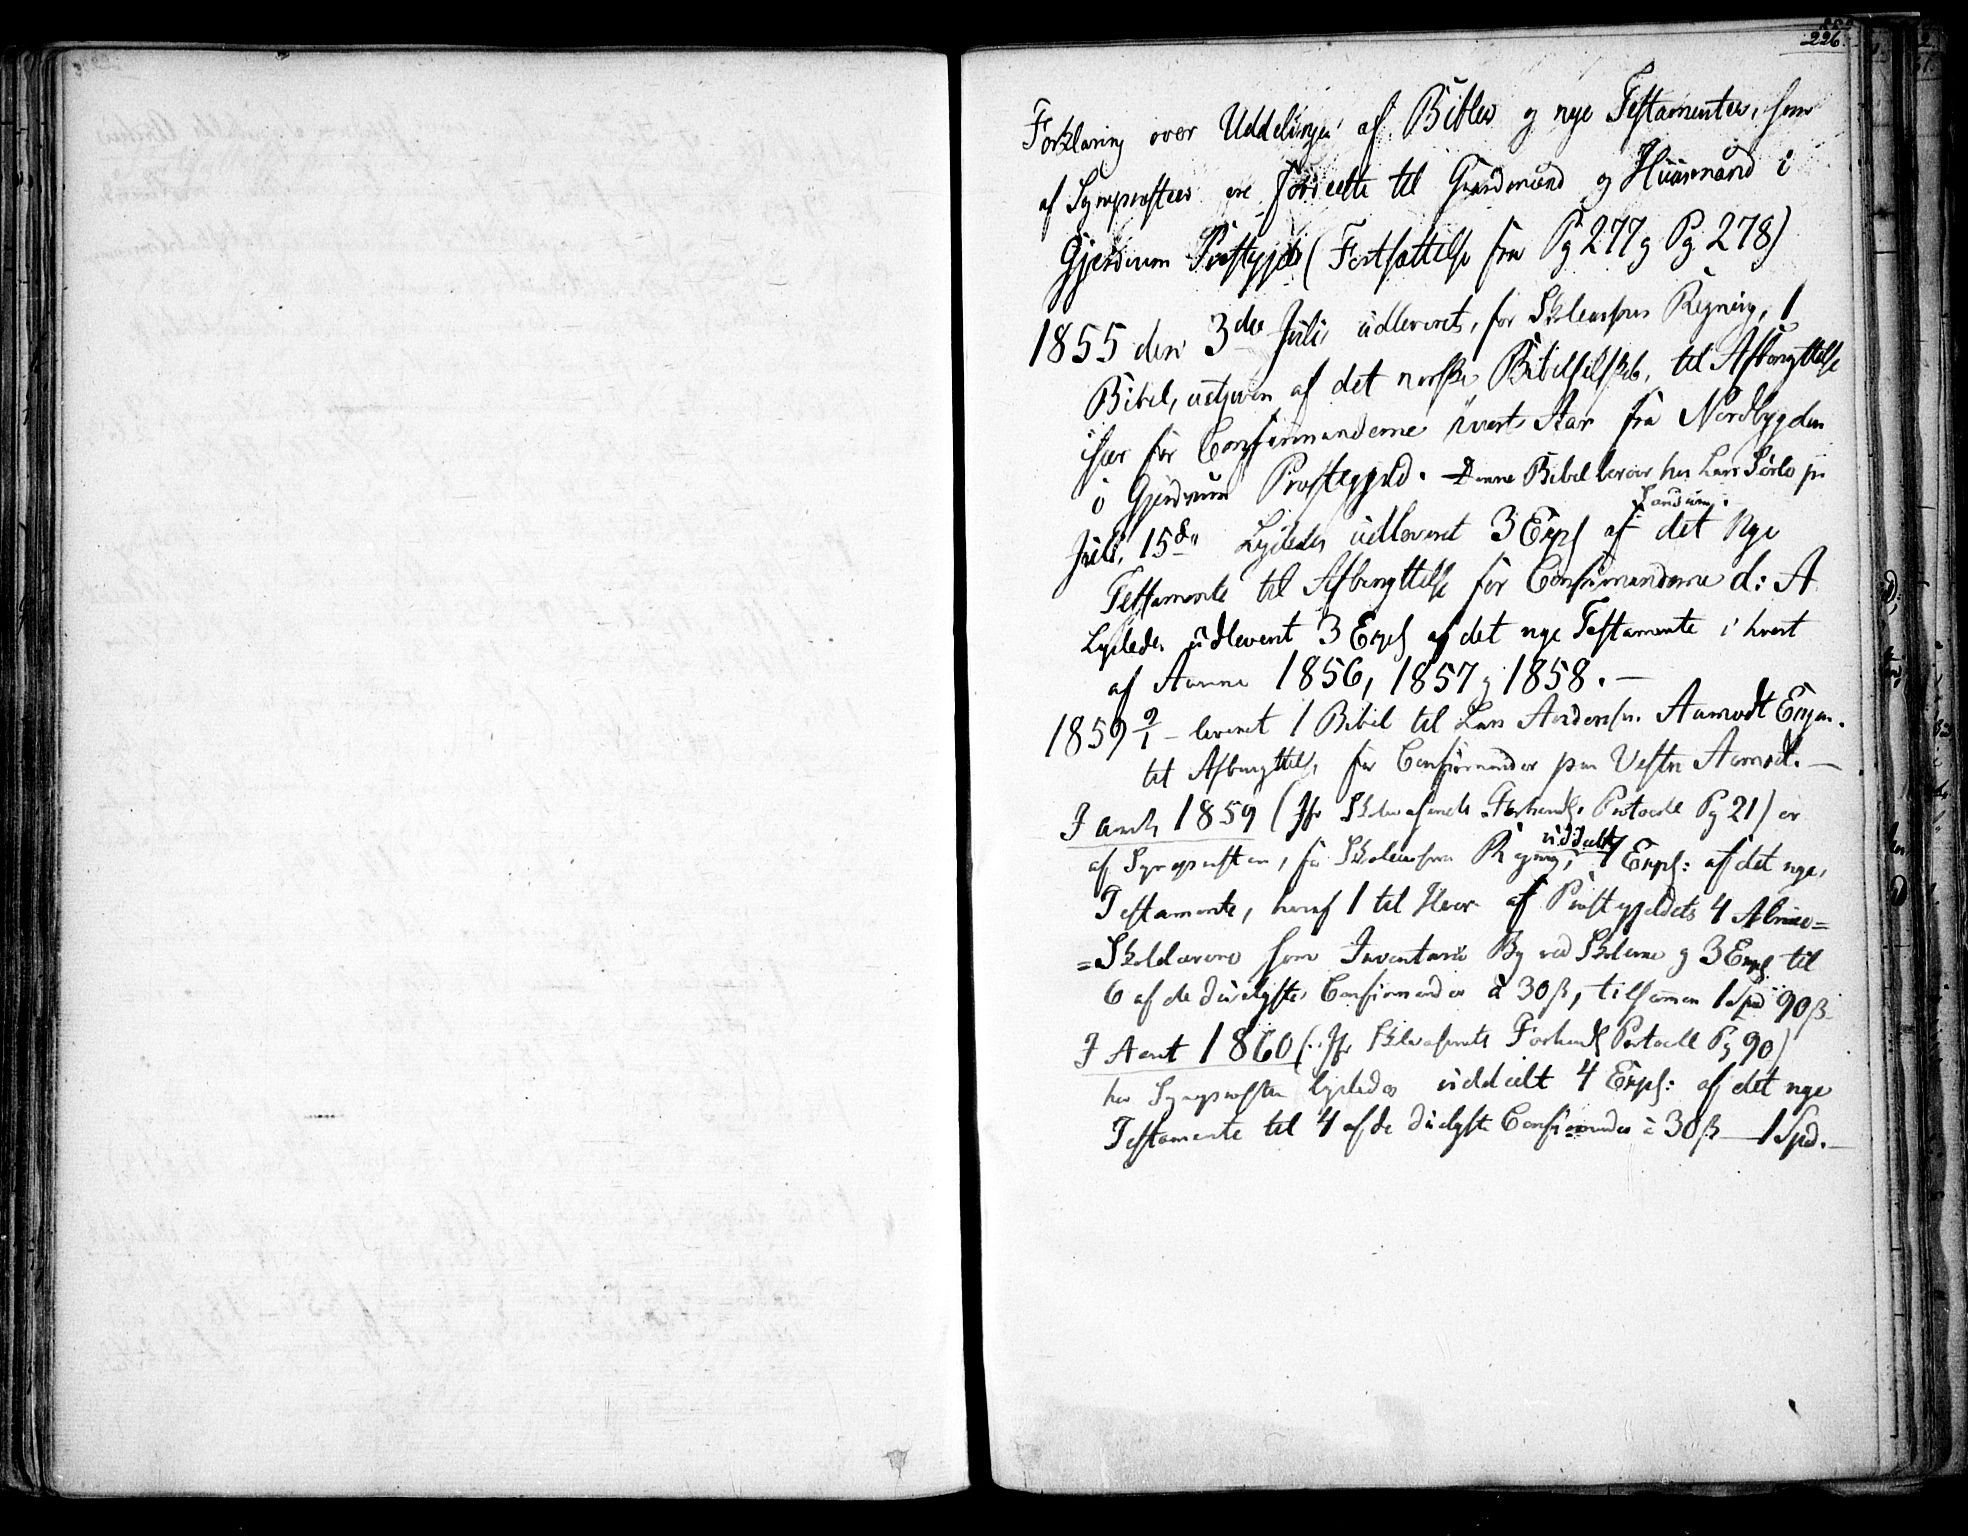 226.
Forklaring over Uddelingen af Bibler og nye Testamenter, som
af Sognepræsten ere til Gaardmænd og Huusmænd i
Gjerdrum Præstegjeld (Fortsættelse fra Pg 277 og Pg 278)
1855 den 3die Juli udleveret, for Skolecassens Regning, 1
Bibel, udgiven af det norske Bibelselskab, til Afbenyttelse
især for Confirmanderne hvert Aar fra Nordbygden
i Gjerdrum Præstegjeld. Denne Bibel beroer hos Lars Sørlo
Juli, 15de Ligeledes udleveret 3 Expl af det Nye
Testamente til Afbenyttelse for Confirmanderne d: A
Ligeledes udleveret 3 Expl af det nye Testamente i hvert
af Aarene 1856, 1857 og 1858. —
1859 9/1 - leveret 1 Bibel til Lars Andersen Aamodt Eyer.
til Afbenyttelse for Confirmander paa Vestre Aamodt. —
I Aaret 1859 (Jfr Skolecassens Forhandl. Protocoll Pg 21) er
af Sognepræsten, for Skolecassens Regning, uddeelt 7 Expl: af det nye
Testamente, heraf 1 til Hver af Præstegjeldets 4 Almue=
=Skolelærere som Inventarium ved Skolerne og 3 Expl til
6 af de dueligste Confirmander à 30 ß, tilsammen 1 Spd 90 ß
I Aaret 1860 (Jfr Skolecassens Forhandl Protocoll Pg 90)
har Sognepræsten ligeledes uddeelt 4 Expl: af det nye
Testamente til 4 af de dueligste Confirmander à 30 ß — 1 Spd. —